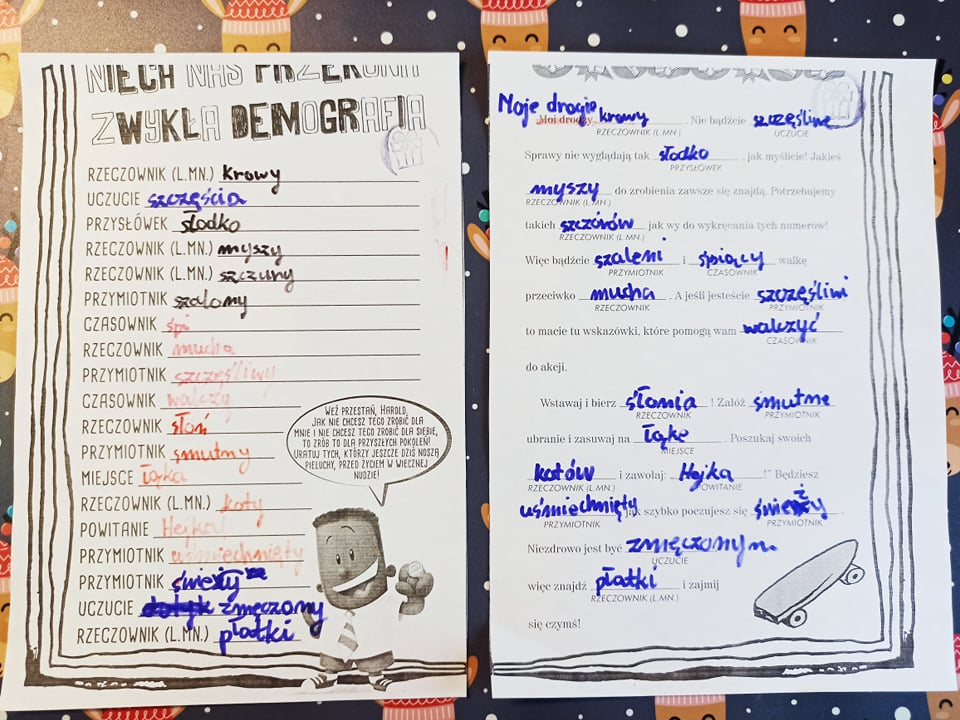 NIECH NAS PRZEKONA
ZWYKŁA DEMOGRAFIA
RZECZOWNIK (L.MN.) krowy
UCZUCIE szczęścia
PRZYSŁÓWEK słodko
RZECZOWNIK (L.MN.) myszy
RZECZOWNIK (L.MN.) szczury
PRZYMIOTNIK szalony
CZASOWNIK śpi
RZECZOWNIK mucha
PRZYMIOTNIK szczęśliwy
CZASOWNIK walczy
RZECZOWNIK słoń
PRZYMIOTNIK smutny
MIEJSCE łąka
RZECZOWNIK (L.MN.) koty
POWITANIE Hejka
PRZYMIOTNIK uśmiechnięty
PRZYMIOTNIK świeży
UCZUCIE zmęczony
RZECZOWNIK (L.MN.) płatki
WEŹ PRZESTAŃ, HAROLD,
JAK NIE CHCESZ TEGO ZROBIĆ DLA
MNIE I NIE CHCESZ TEGO ZROBIĆ DLA SIEBIE,
TO ZRÓB TO DLA PRZYSZŁYCH POKOLEŃ!
URATUJ TYCH, KTÓRZY JESZCZE DZIŚ NOSZĄ
PIELUCHY, PRZED ŻYCIEM W WIECZNEJ
NUDZIE!
Moje drogie
Moi drodzy krowy . Nie bądźcie szczęśliwe
RZECZOWNIK (L.MN.) UCZUCIE
Sprawy nie wyglądają tak słodko , jak myślicie! Jakieś
PRZYSŁÓWEK
myszy do zrobienia zawsze się znajdą. Potrzebujemy
RZECZOWNIK (L.MN.)
takich szczórów jak wy do wykręcania tych numerów!
RZECZOWNIK (L.MN.)
Więc bądźcie szaleni i śpiący walkę
PRZYMIOTNIK CZASOWNIK
przeciwko mucha . A jeśli jesteście szczęśliwi
RZECZOWNIK (L.MN.) PRZYMIOTNIK
to macie tu wskazówki, które pomogą wam walczyć
CZASOWNIK
do akcji.
Wstawaj i bierz słonia ! Załóż smutne
RZECZOWNIK PRZYMIOTNIK
ubranie i zasuwaj na łąkę . Poszukaj swoich
MIEJSCE
kotów i zawołaj: „Hejka !” Będziesz
RZECZOWNIK (L.MN.) POWITANIE
uśmiechnięty jak szybko poczujesz się świeży .
PRZYMIOTNIK PRZYMIOTNIK
Niezdrowo jest być zmęczonym.
UCZUCIE
więc znajdź płatki i zajmij
RZECZOWNIK (L.MN.)
się czymś!